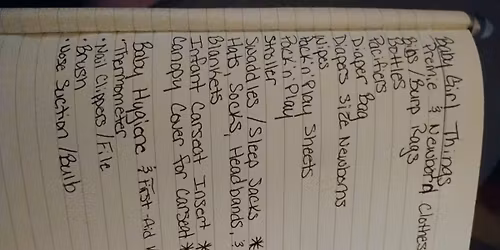 Baby Girl Things
Premie & Newborn Clothes
Bibs/Burp Rags
Bottles
Pacifiers
Diaper Bag
Diapers Size Newborns
Wipes
Pack'n'Play Sheets
Pack'n'Play
Stroller
Swaddles/Sleep Sacks *
Hats, Socks, Headbands, &
Blankets
Infant Carseat Insert *
Canopy Cover for Carseat *
Baby Hygiene & First-Aid
• Thermometer
• Nail Clippers/File
• Brush
• Nose Suction/Bulb